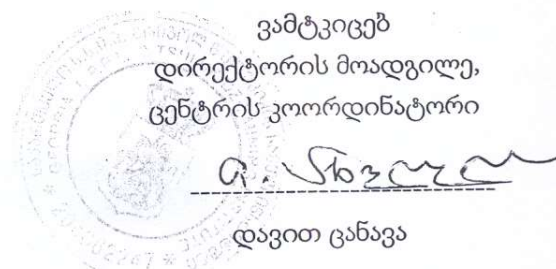 ვამტკიცებ
დირექტორის მოადგილე,
ცენტრის კოორდინატორი
დავით ცანავა